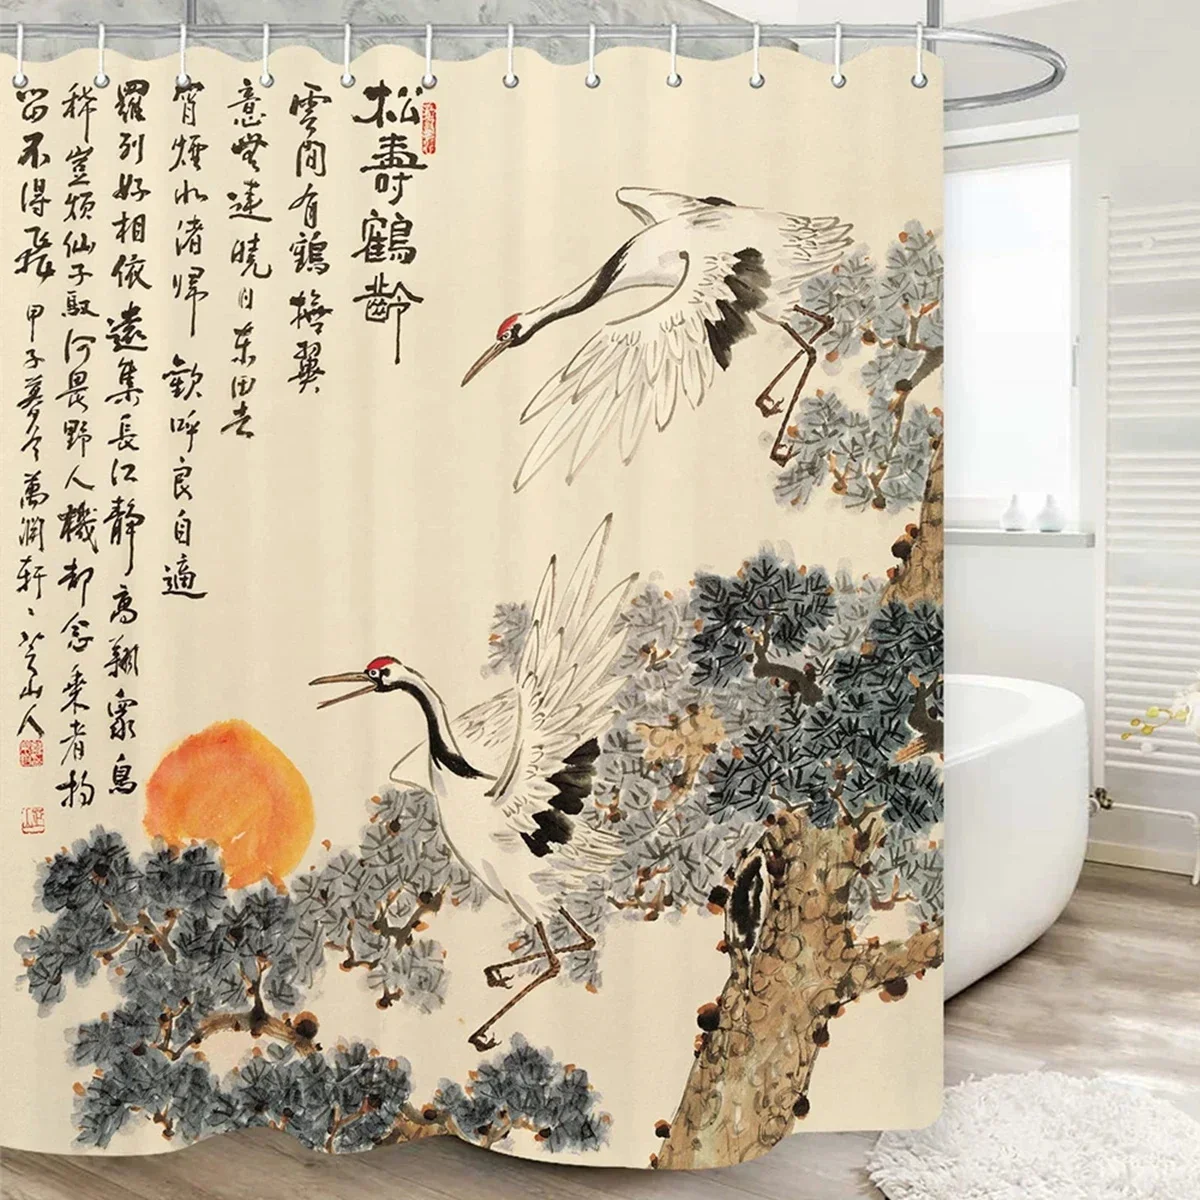 松壽鶴齡
雲間有鶴摶翼
意無違曉日東田去
宵煙水渚歸 歡呼良自適
羅列好相依遠集長江靜高翔眾鳥
稀豈煩仙子馭何畏野人機却念乘者拘
留不得飛 甲子暮冬萬澗軒山人